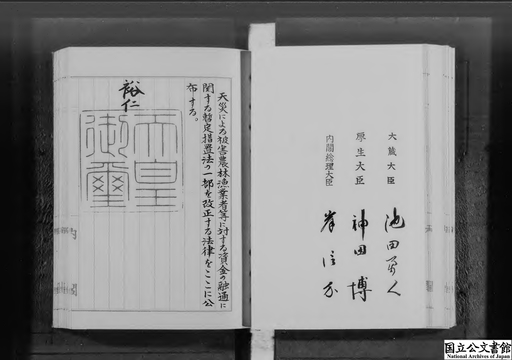 大蔵大臣 池田勇人
厚生大臣 神田博
内閣総理大臣 岸信介
天災による被害農林漁業者等に対する資金の融通に
関する暫定措置法の一部を改正する法律をここに公
布する。
裕仁
天皇
御璽
国立公文書館
National Archives of Japan